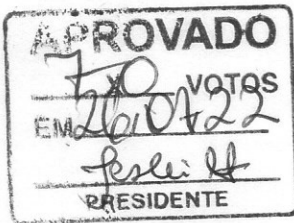 APROVADO
7x0 VOTOS
EM 26,01,22
PRESIDENTE